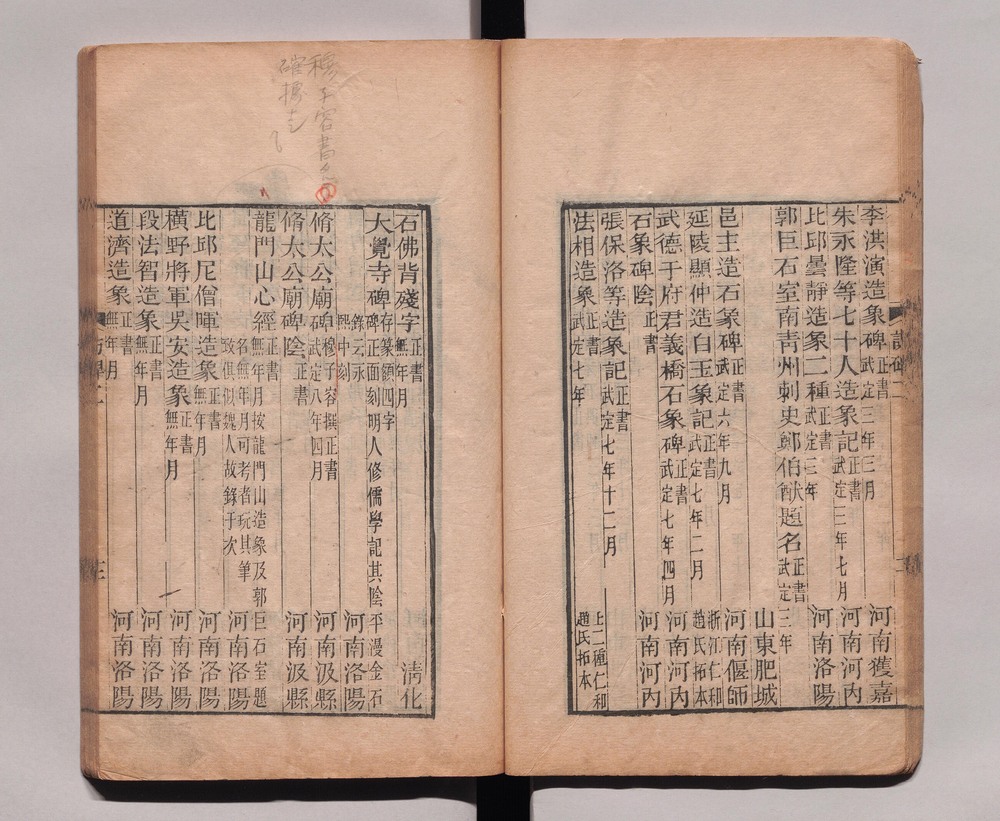 李洪演造象碑 正書 武定三年三月 河南獲嘉
朱永隆等七十人造象記 正書 武定三年七月 河南河內
比邱曇靜造象二種 正書 武定三年 河南洛陽
郭巨石室南青州刺史鄭伯猷題名 正書 武定三年 山東肥城
邑主造石象碑 正書 武定六年九月 河南偃師
延陵顯仲造白玉象記 正書 武定七年二月 浙江仁和趙氏拓本
武德于府君義橋石象碑 正書 武定七年四月 河南河內
石象碑陰 正書 河南河內
張保洛等造象記 正書 武定七年十二月
法相造象 正書 武定七年 上二種仁和趙氏拓本
石佛背殘字 正書 無年月 清化
大覺寺碑 存篆額四字碑正面刻明人修儒學記其陰平漫金石
錄云永熙中刻 河南洛陽
脩太公廟碑 穆子容撰正書 武定八年四月 河南汲縣
脩太公廟碑陰 正書 河南汲縣
龍門山心經 正書 無年月按龍門山造象及郭巨石室題
名無年月可考者玩其筆致俱似魏人故錄于次 河南洛陽
比邱尼僧暉造象 正書 無年月 河南洛陽
橫野將軍吳安造象 正書 無年月 河南洛陽
段法智造象 正書 無年月 河南洛陽
道濟造象 正書 無年月 河南洛陽
穆子容書